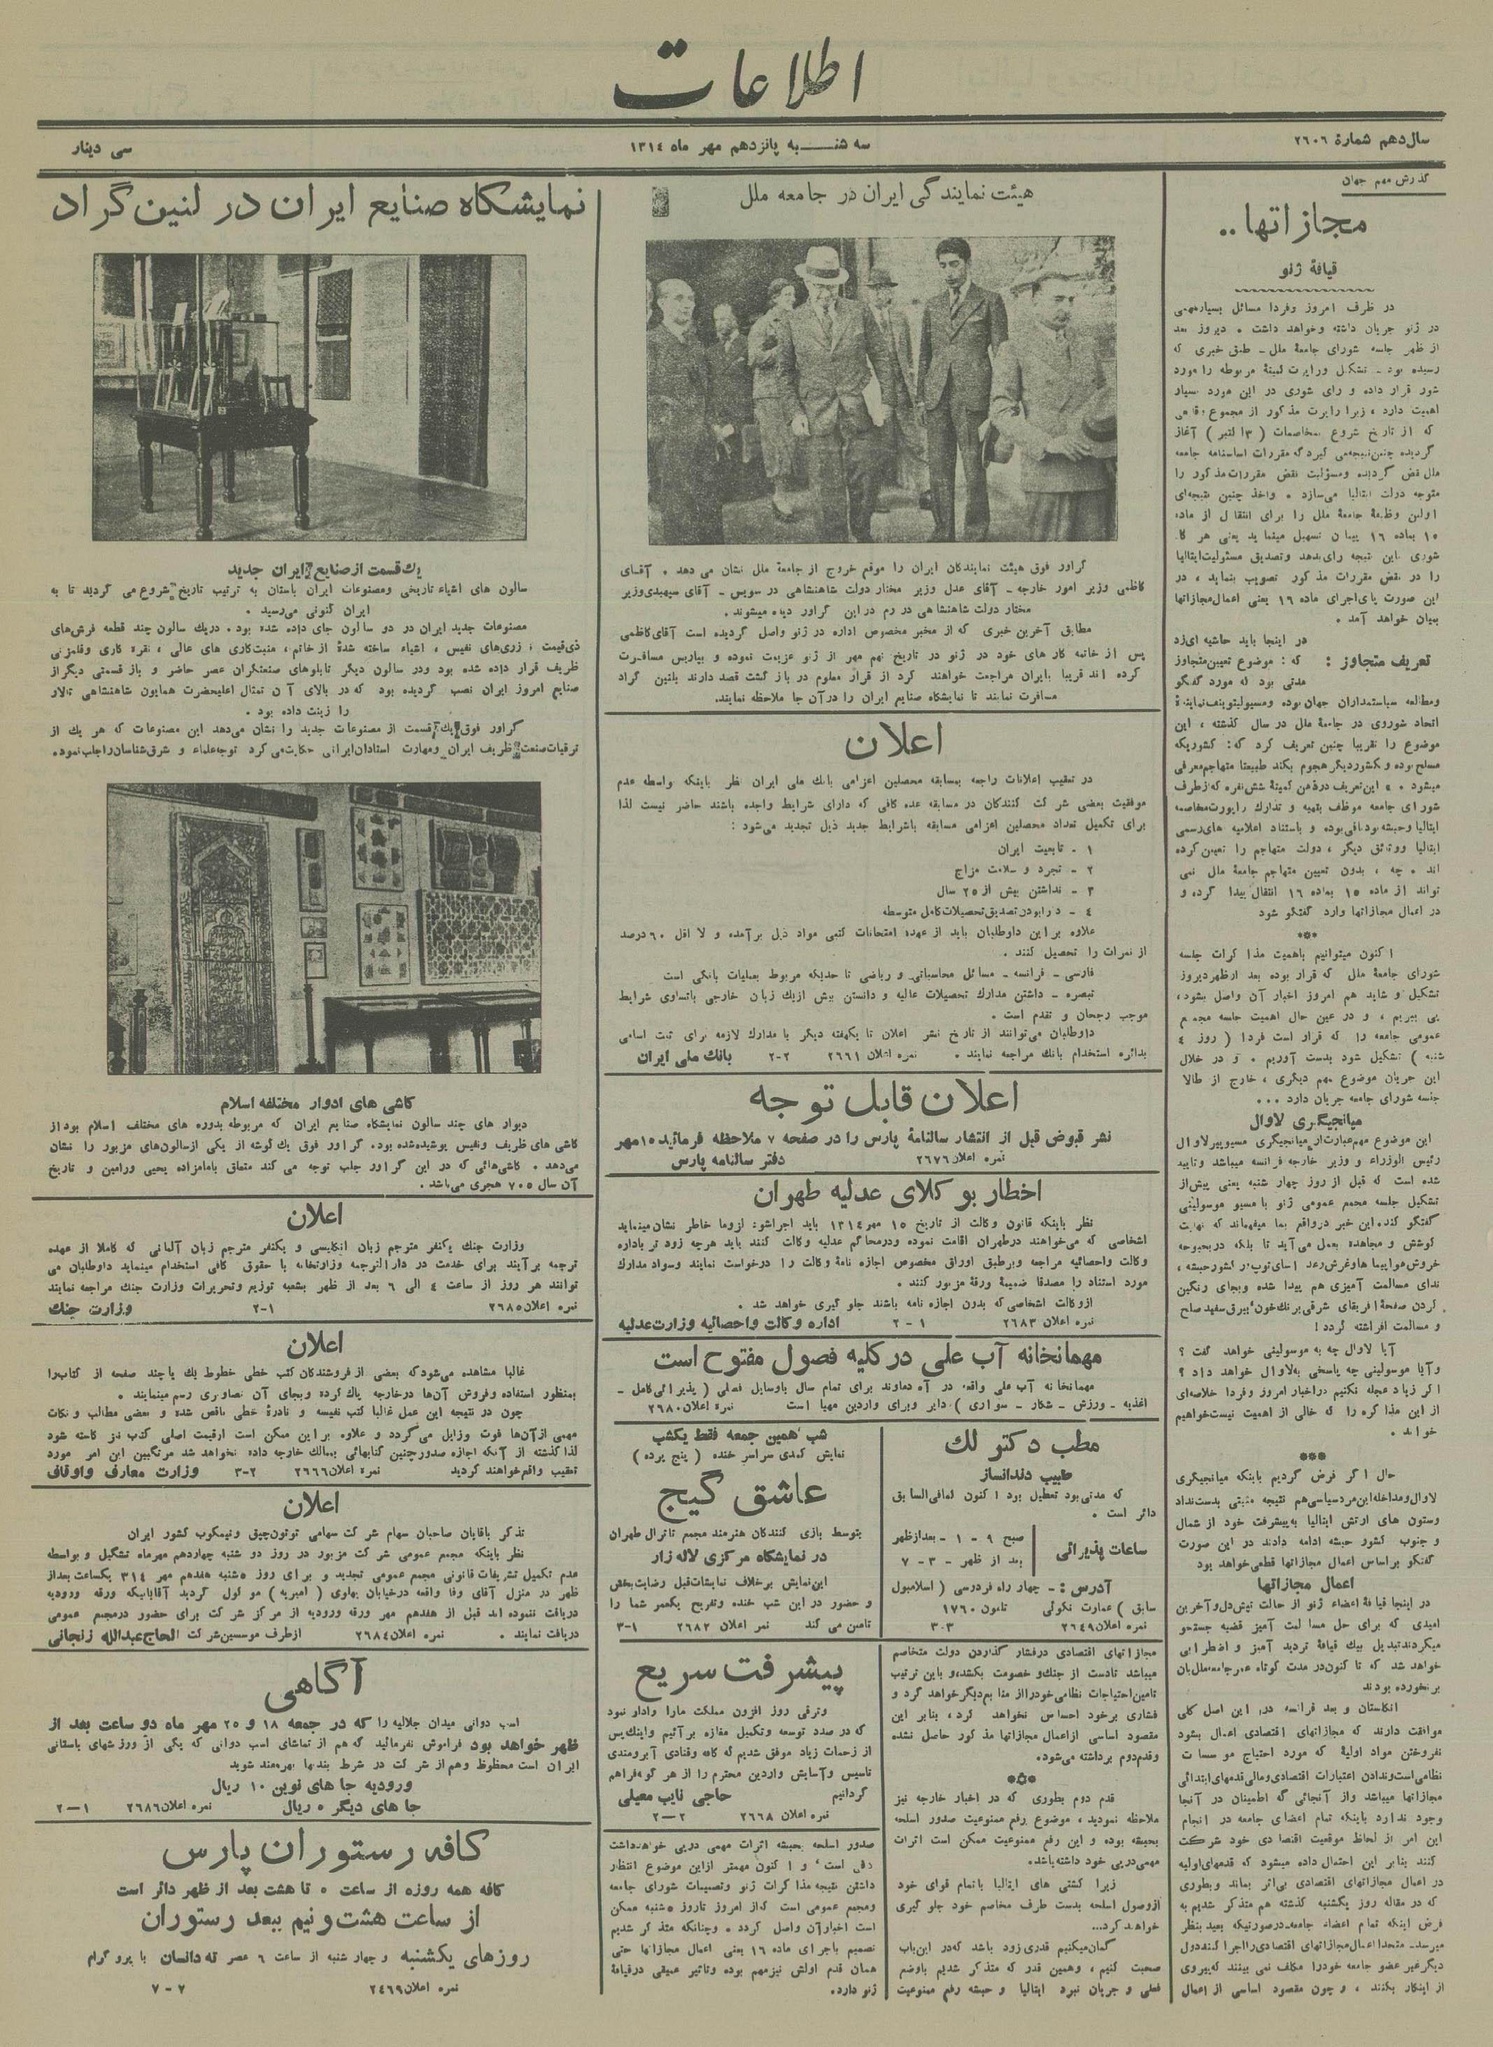 اطلاعات
سال دهم شمارهٔ ۲۶۰۶
سه شنـــبه پانزدهم مهر ماه ۱۳۱٤
سی دینار
گذارش مهم جهان
مجازاتها..
قیافهٔ ژنو
در ظرف امروز وفردا مسائل بسیارمهمی
در ژنو جریان داشته وخواهد داشت . دیروز بعد
از ظهر جلسه شورای جامعهٔ ملل ـ طبق خبری که
رسیده بود ـ تشکیل وراپرت کمیتهٔ مربوطه را مورد
شور قرار داده و رای شوری در این مورد بسیار
اهمیت دارد ، زیرا راپرت مذکور از مجموع وقایعی
گردیده چنین نتیجه می گیرد که مقررات اساسنامه جامعه
ملل نقض گردیده ومسؤلیت نقض مقررات مذکور را
متوجه دولت ایتالیا می‌سازد . واخذ چنین نتیجه‌ای
اولین وظیفهٔ جامعهٔ ملل را برای انتقال از ماده
۱۵ بماده ۱٦ پیمان تسهیل مینماید یعنی هر گاه
شوری باین نتیجه رای بدهد وتصدیق مسئولیت ایتالیا
را در نقض مقررات مذکور تصویب بنماید ، در
این صورت پای اجرای ماده ۱٦ یعنی اعمال مجازاتها
بمیان خواهد آمد .
تعریف متجاوز :
در اینجا باید حاشیه ای زد
که : موضوع تعیین متجاوز
مدتی بود که مورد گفتگو
ومطالعه سیاستمداران جهان بوده ومسیولیتوینف نمایندهٔ
اتحاد شوروی در جامعهٔ ملل در سال گذشته ، این
موضوع را تقریبا چنین تعریف کرد که: کشوریکه
مسلح بوده و بکشور دیگر هجوم بکند طبیعتا متهاجم معرفی
شورای جامعه موظف بتهیه و تدارک راپورت مخاصمه
ایتالیا وحبشه بود باقی بوده و باستناد اعلامیه های رسمی
ایتالیا ووثائق دیگر ، دولت متهاجم را تعیین کرده
اند . چه ، بدون تعیین متهاجم جامعهٔ ملل نمی
تواند از ماده ۱۵ بماده ۱٦ انتقال پیدا کرده و
در اعمال مجازاتها وارد گفتگو شود
***
اکنون میتوانیم باهمیت مذاکرات جلسه
شورای جامعهٔ ملل که قرار بوده بعد ازظهر دیروز
تشکیل و شاید هم امروز اخبار آن واصل بشود ،
پی ببریم ، و در عین حال اهمیت جلسه مجمع
عمومی جامعه را که قرار است فردا ( روز ٤
شنبه ) تشکیل شود بدست آوریم . و در خلال
این جریان موضوع مهم دیگری ، خارج از طالار
جلسه شورای جامعه جریان دارد ...
میانجیگری لاوال
این موضوع مهم عبارت از میانجیگری مسیوپیرلاوال
رئیس الوزراء و وزیر خارجه فرانسه میباشد وتایید
شده است که قبل از روز چهار شنبه یعنی پیش از
تشکیل جلسه مجمع عمومی ژنو با مسیو موسولینی
گفتگو کند. این خبر درواقع بما میفهماند که نهایت
کوشش و مجاهده بعمل می‌آید تا بلکه دربحبوحه
ندای مسالمت آمیزی هم پیدا شده وبجای رنگین
کردن صفحهٔ افریقای شرقی برنگ خون، بیرق سفید صلح
و مسالمت افراشته گردد!
آیا لاوال چه به موسولینی خواهد گفت ؟
وآیا موسولینی چه پاسخی به لاوال خواهد داد ؟
اگر زیاد عجله نکنیم دراخبار امروز وفردا خلاصه‌ای
از این مذاکره را که خالی از اهمیت نیست خواهیم
خواند .
***
حال اگر فرض کردیم باینکه میانجیگری
لاوال ومداخله این مرد سیاسی هم نتیجه مثبتی بدست نداد
وستون های ارتش ایتالیا به پیشرفت خود از شمال
و جنوب کشور حبشه ادامه دادند در این صورت
گفتگو بر اساس اعمال مجازاتها قطعی خواهد بود
اعمال مجازاتها
در اینجا قیافهٔ اعضاء ژنو از حالت تپش دل و آخرین
امیدی که برای حل مسالمت آمیز قضیه جستجو
میکردند تبدیل بیک قیافهٔ تردید آمیز و اضطرابی
خواهد شد که تا کنون در مدت کوتاه عمر جامعه ملل بآن
برنخورده بودند
انگلستان و بعد فرانسه در این اصل کلی
موافقت دارند که مجازاتهای اقتصادی اعمال بشود
نفروختن مواد اولیهٔ که مورد احتیاج موسسات
نظامی است وندادن اعتبارات اقتصادی و مالی قدمهای ابتدائی
مجازاتها میباشد واز آنجائی که اطمینان در آنجا
وجود ندارد باینکه تمام اعضای جامعه در انجام
این امر از لحاظ موقعیت اقتصادی خود شرکت
کنند بنابر این احتمال داده میشود که قدمهای اولیه
در اعمال مجازاتهای اقتصادی بی‌اثر بماند وبطوری
که در مقاله روز یکشنبه گذشته هم متذکر شدیم به
فرض اینکه تمام اعضاء جامعه، درصورتیکه بعید بنظر
میرسد، متحدا اعمال مجازاتهای اقتصادی را اجرا کنند دول
دیگر غیر عضو جامعه خود را مکلف نمی بینند که پیروی
از اینکار بکنند ، و چون مقصود اساسی از اعمال
هیئت نمایندگی ایران در جامعه ملل
گراور فوق هیئت نمایندگان ایران را موقع خروج از جامعهٔ ملل نشان می دهد . آقای
کاظمی وزیر امور خارجه - آقای عدل وزیر مختار دولت شاهنشاهی در سویس ـ آقای سپهبدی وزیر
مختار دولت شاهنشاهی در رم در این گراور دیده میشوند.
مطابق آخرین خبری که از مخبر مخصوص اداره در ژنو واصل گردیده است آقای کاظمی
پس از خاتمه کار های خود در ژنو در تاریخ نهم مهر از ژنو عزیمت نموده و بپاریس مسافرت
کرده اند قریبا بایران مراجعت خواهند کرد از قرار معلوم در باز گشت قصد دارند بلنین گراد
مسافرت نمایند تا نمایشگاه صنایع ایران را در آن جا ملاحظه نمایند.
اعلان
در تعقیب اعلانات راجعه بمسابقه محصلین اعزامی بانك ملی ایران نظر باینکه بواسطه عدم
موفقیت بعضی شرکت کنندگان در مسابقه عده کافی که دارای شرایط واجده باشند حاضر نیست لذا
برای تکمیل تعداد محصلین اعزامی مسابقه باشرایط جدید ذیل تجدید می‌شود :
۱ ـ تابعیت ایران
۲ ـ تجرد و سلامت مزاج
۳ ـ نداشتن بیش از ۲۵ سال
٤ ـ دارا بودن تصدیق تحصیلات کامل متوسطه
علاوه بر این داوطلبان باید از عهده امتحانات کتبی مواد ذیل برآمده و لااقل ٦۰ درصد
از نمرات را تحصیل کنند .
فارسی - فرانسه - مسائل محاسباتی و ریاضی تا حدیکه مربوط بعملیات بانکی است
تبصره - داشتن مدارک تحصیلات عالیه و دانستن بیش ازیك زبان خارجی باتساوی شرایط
موجب رجحان و تقدم است .
داوطلبان می‌توانند از تاریخ نشر اعلان تا یکهفته دیگر با مدارک لازمه برای ثبت اسامی
بدائره استخدام بانك مراجعه نمایند . نمره اعلان ۲٦٦۱ ۲-۲ بانك ملی ایران
اعلان قابل توجه
نشر قبوض قبل از انتشار سالنامهٔ پارس را در صفحه ۷ ملاحظه فرمائید ۱۵ مهر
نمره اعلان ۲٦۷٦ دفتر سالنامه پارس
اخطار بوکلای عدلیه طهران
نظر باینکه قانون وکالت از تاریخ ۱۵ مهر ۱۳۱٤ باید اجراشود لزوما خاطر نشان مینماید
اشخاصی که می‌خواهند درطهران اقامت نموده ودرمحاکم عدلیه وکالت کنند باید هرچه زود تر باداره
وکالت واحصائیه مراجعه وبرطبق اوراق مخصوص اجازه نامهٔ وکالت را درخواست نمایند وسواد مدارک
مورد استناد را مصدقا ضمیمهٔ ورقهٔ مزبور کنند .
ازوکالت اشخاصی که بدون اجازه نامه باشند جلو گیری خواهد شد .
نمره اعلان ۲٦۸۳ ۱ - ۲ اداره وکالت واحصائیه وزارت عدلیه
مهمانخانه آب علی در کلیه فصول مفتوح است
مهمانخانه آب علی واقعه در آه دماوند برای تمام سال باوسایل فصلی ( پذیرائی کامل -
اغذیه - ورزش - شکار - سواری ) دایر وبرای واردین مهیا است نمره اعلان ۲٦۸۰
مطب دکتر لك
طبیب دندانساز
که مدتی بود تعطیل بود اکنون کمافی السابق
دائر است .
ساعات پذیرائی
صبح ۹ - ۱ - بعدازظهر
بعد از ظهر - ۳ - ۷
آدرس : - چهار راه فردوسی ( اسلامبول
سابق ) عمارت نکوئی تلفون ۱۷٦۰
نمره اعلان ۲٦٤۹ ۳۰۳
شب همین جمعه فقط یکشب
نمایش کمدی سراسر خنده ( پنج پرده )
عاشق گیج
بتوسط بازی کنندگان هنرمند مجمع تاترال طهران
در نمایشگاه مرکزی لاله زار
این نمایش برخلاف نمایشات قبل رضایت بخش
و حضور در این شب خنده وتفریح یکعمر شما را
تامین می کند نمره اعلان ۲٦۸۲ ۱-۳
پیشرفت سریع
وترقی روز افزون مملکت مارا وادار نمود
که در صدد توسعه وتکمیل مغازه برآئیم واینك پس
از زحمات زیاد موفق شدیم که کافه وقنادی آبرومندی
تاسیس وآسایش واردین محترم را از هر گونه فراهم
گردانیم حاجی نایب معیلی
نمره اعلان ۲٦٦۸ ۲-۲
مجازاتهای اقتصادی درفشار گذاردن دولت متخاصم
میباشد تادست از جنك و خصومت بکشد، و باین ترتیب
تامین احتیاجات نظامی خود را از منابع دیگر خواهد کرد و
فشاری برخود احساس نخواهد کرد ، بنابر این
مقصود اساسی ازاعمال مجازاتها مذکور حاصل نشده
وقدم دوم برداشته می‌شود.
***
قدم دوم بطوری که در اخبار خارجه نیز
ملاحظه نمودید ، موضوع رفع ممنوعیت صدور اسلحه
بحبشه بوده و این رفع ممنوعیت ممکن است اثرات
مهمی درپی خود داشته باشد.
زیرا کشتی های ایتالیا با تمام قوای خود
ازوصول اسلحه بدست طرف مخاصم خود جلو گیری
خواهند کرد...
گمان میکنیم قدری زود باشد که در این باب
صحبت کنیم ، وهمین قدر که متذکر شدیم باوضع
فعلی و جریان نبرد ایتالیا و حبشه رفع ممنوعیت
صدور اسلحه بحبشه اثرات مهمی درپی خواهد داشت
کافی است ، و اکنون مهمتر ازاین موضوع انتظار
داشتن نتیجه مذاکرات ژنو وتصمیمات شورای جامعه
ومجمع عمومی است که از امروز تا روز ۵ شنبه ممکن
است اخبار آن واصل گردد . وچنانکه متذکر شدیم
تصمیم باجرای ماده ۱٦ یعنی اعمال مجازاتها حتی
همان قدم اولش نیز مهم بوده وتاثیر عمیقی در قیافهٔ
ژنو دارد.
نمایشگاه صنایع ایران در لنین گراد
یك قسمت از صنایع ایران جدید
سالون های اشیاء تاریخی ومصنوعات ایران باستان به ترتیب تاریخ شروع می گردید تا به
ایران کنونی می‌رسید .
مصنوعات جدید ایران در دو سالون جای داده شده بود . دریك سالون چند قطعه فرش‌های
ذی‌قیمت ، زری‌های نفیس ، اشیاء ساخته شدهٔ از خاتم ، منبت کاری های عالی ، نقره کاری وقلمزنی
ظریف قرار داده شده بود ودر سالون دیگر تابلوهای صنعتگران عصر حاضر و باز قسمتی دیگر از
صنایع امروز ایران نصب گردیده بود که در بالای آن تمثال اعلیحضرت همایون شاهنشاهی تالار
را زینت داده بود .
گراور فوق یك قسمت از مصنوعات جدید را نشان می‌دهد این مصنوعات که هر یك از
ترقیات صنعت ظریف ایران ومهارت استادان ایرانی حکایت می کرد توجه علماء و شرق شناسان را جلب نموده.
کاشی های ادوار مختلفه اسلام
دیوار های چند سالون نمایشگاه صنایع ایران که مربوطه بدوره های مختلف اسلام بود از
کاشی های ظریف ونفیس پوشیده شده بود. گراور فوق یك گوشه از یکی از سالون‌های مزبور را نشان
می‌دهد . کاشی‌هائی که در این گراور جلب توجه می کند متعلق بامامزاده یحیی ورامین و تاریخ
آن سال ۷۰۵ هجری می‌باشد .
اعلان
وزارت جنك یکنفر مترجم زبان انگلیسی و یکنفر مترجم زبان آلمانی که کاملا از عهده
ترجمه برآیند برای خدمت در دارالترجمه وزارتخانه با حقوق کافی استخدام مینماید داوطلبان می
توانند هر روز از ساعت ٤ الی ٦ بعد از ظهر بشعبه توزیع وتحریرات وزارت جنك مراجعه نمایند
نمره اعلان ۲٦۸۵ ۱-۲ وزارت جنك
اعلان
غالبا مشاهده می‌شود که بعضی از فروشندگان کتب خطی خطوط یك یا چند صفحه از کتاب را
بمنظور استفاده وفروش آن‌ها درخارجه پاك کرده وبجای آن تصاویری رسم مینمایند .
چون در نتیجه این عمل غالبا کتب نفیسه و نادرهٔ خطی ناقص شده و بعضی مطالب و نکات
مهمی از آن‌ها فوت وزایل می‌گردد و علاوه بر این ممکن است ازقیمت اصلی کتب نیز کاسته شود
لذا گذشته از آنکه اجازه صدور چنین کتابهائی بممالك خارجه داده نخواهد شد مرتکبین این امر مورد
تعقیب واقع خواهند گردید نمره اعلان ۲٦٦٦ ۲-۳ وزارت معارف واوقاف
اعلان
تذکر باقایان صاحبان سهام شرکت سهامی توتون چپق وتیمکوب کشور ایران
نظر باینکه مجمع عمومی شرکت مزبور در روز دو شنبه چهاردهم مهرماه تشکیل و بواسطه
عدم تکمیل تشریفات قانونی مجمع عمومی تجدید و برای روز ۵ شنبه هفدهم مهر ۳۱٤ یکساعت بعد از
ظهر در منزل آقای وفا واقعه درخیابان پهلوی ( امیریه ) موکول گردید آقایانیکه ورقه ورودیه
دریافت ننموده اند قبل از هفدهم مهر ورقه ورودیه از مرکز شرکت برای حضور در مجمع عمومی
دریافت نمایند . نمره اعلان ۲٦۸٤ ازطرف موسسین شرکت الحاج عبدالله زنجانی
آگاهی
اسب دوانی میدان جلالیه را که در جمعه ۱۸ و ۲۵ مهر ماه دو ساعت بعد از
ظهر خواهد بود فراموش نفرمائید که هم از تماشای اسب دوانی که یکی از ورزشهای باستانی
ایران است محظوظ وهم از شرکت در شرط بندیها بهره‌مند شوید
ورودیه جا های نوین ۱۰ ریال
جا های دیگر ۵ ریال نمره اعلان ۲٦۸٦ ۱-۲
کافه رستوران پارس
کافه همه روزه از ساعت ۵ تا هشت بعد از ظهر دائر است
از ساعت هشت و نیم ببعد رستوران
روزهای یکشنبه و چهار شنبه از ساعت ٦ عصر ته دانسان با پرو گرام
نمره اعلان ۲٤٦۹ ۷-۷